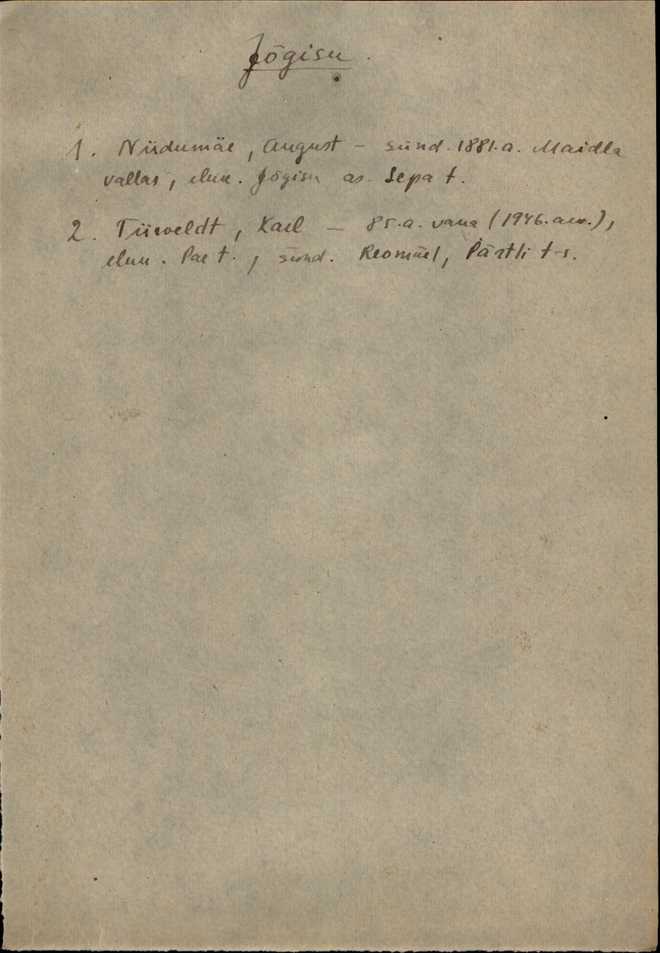 Jõgisu.
1. Niidumäe, August – sünd. 1881.a. Maidla
vallas, elun. Jõgisu as. Sepa t.
2. Tiiveldt, Karl – 85.a. vana (1946.a.),
elun. Pae t., sünd. Reomäel, Pärtli t-s.